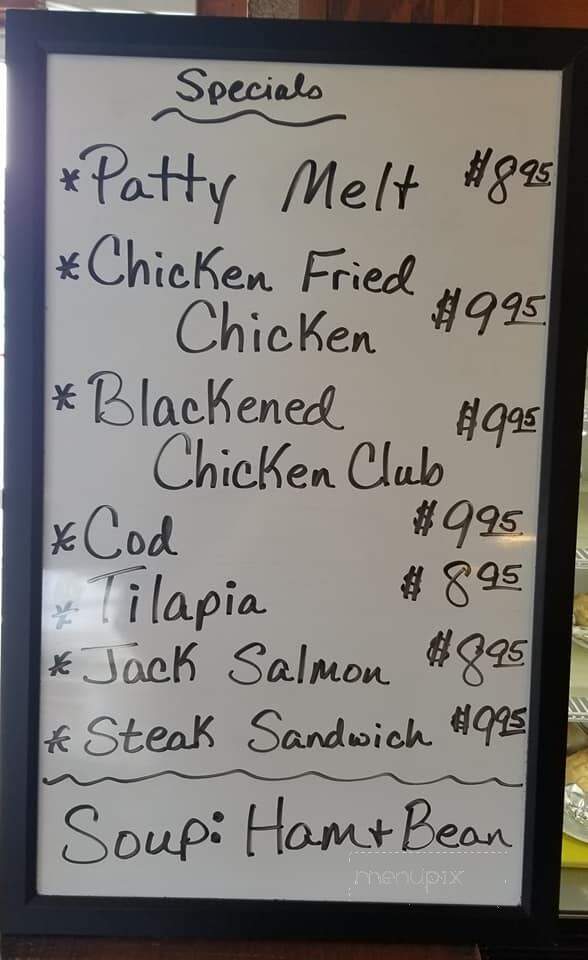 Specials
*Patty Melt $8.95
*Chicken Fried
Chicken $9.95
*Blackened
Chicken Club $9.95
*Cod $9.95
*Tilapia $8.95
*Jack Salmon $8.95
*Steak Sandwich $9.95
Soup: Ham + Bean
menupix